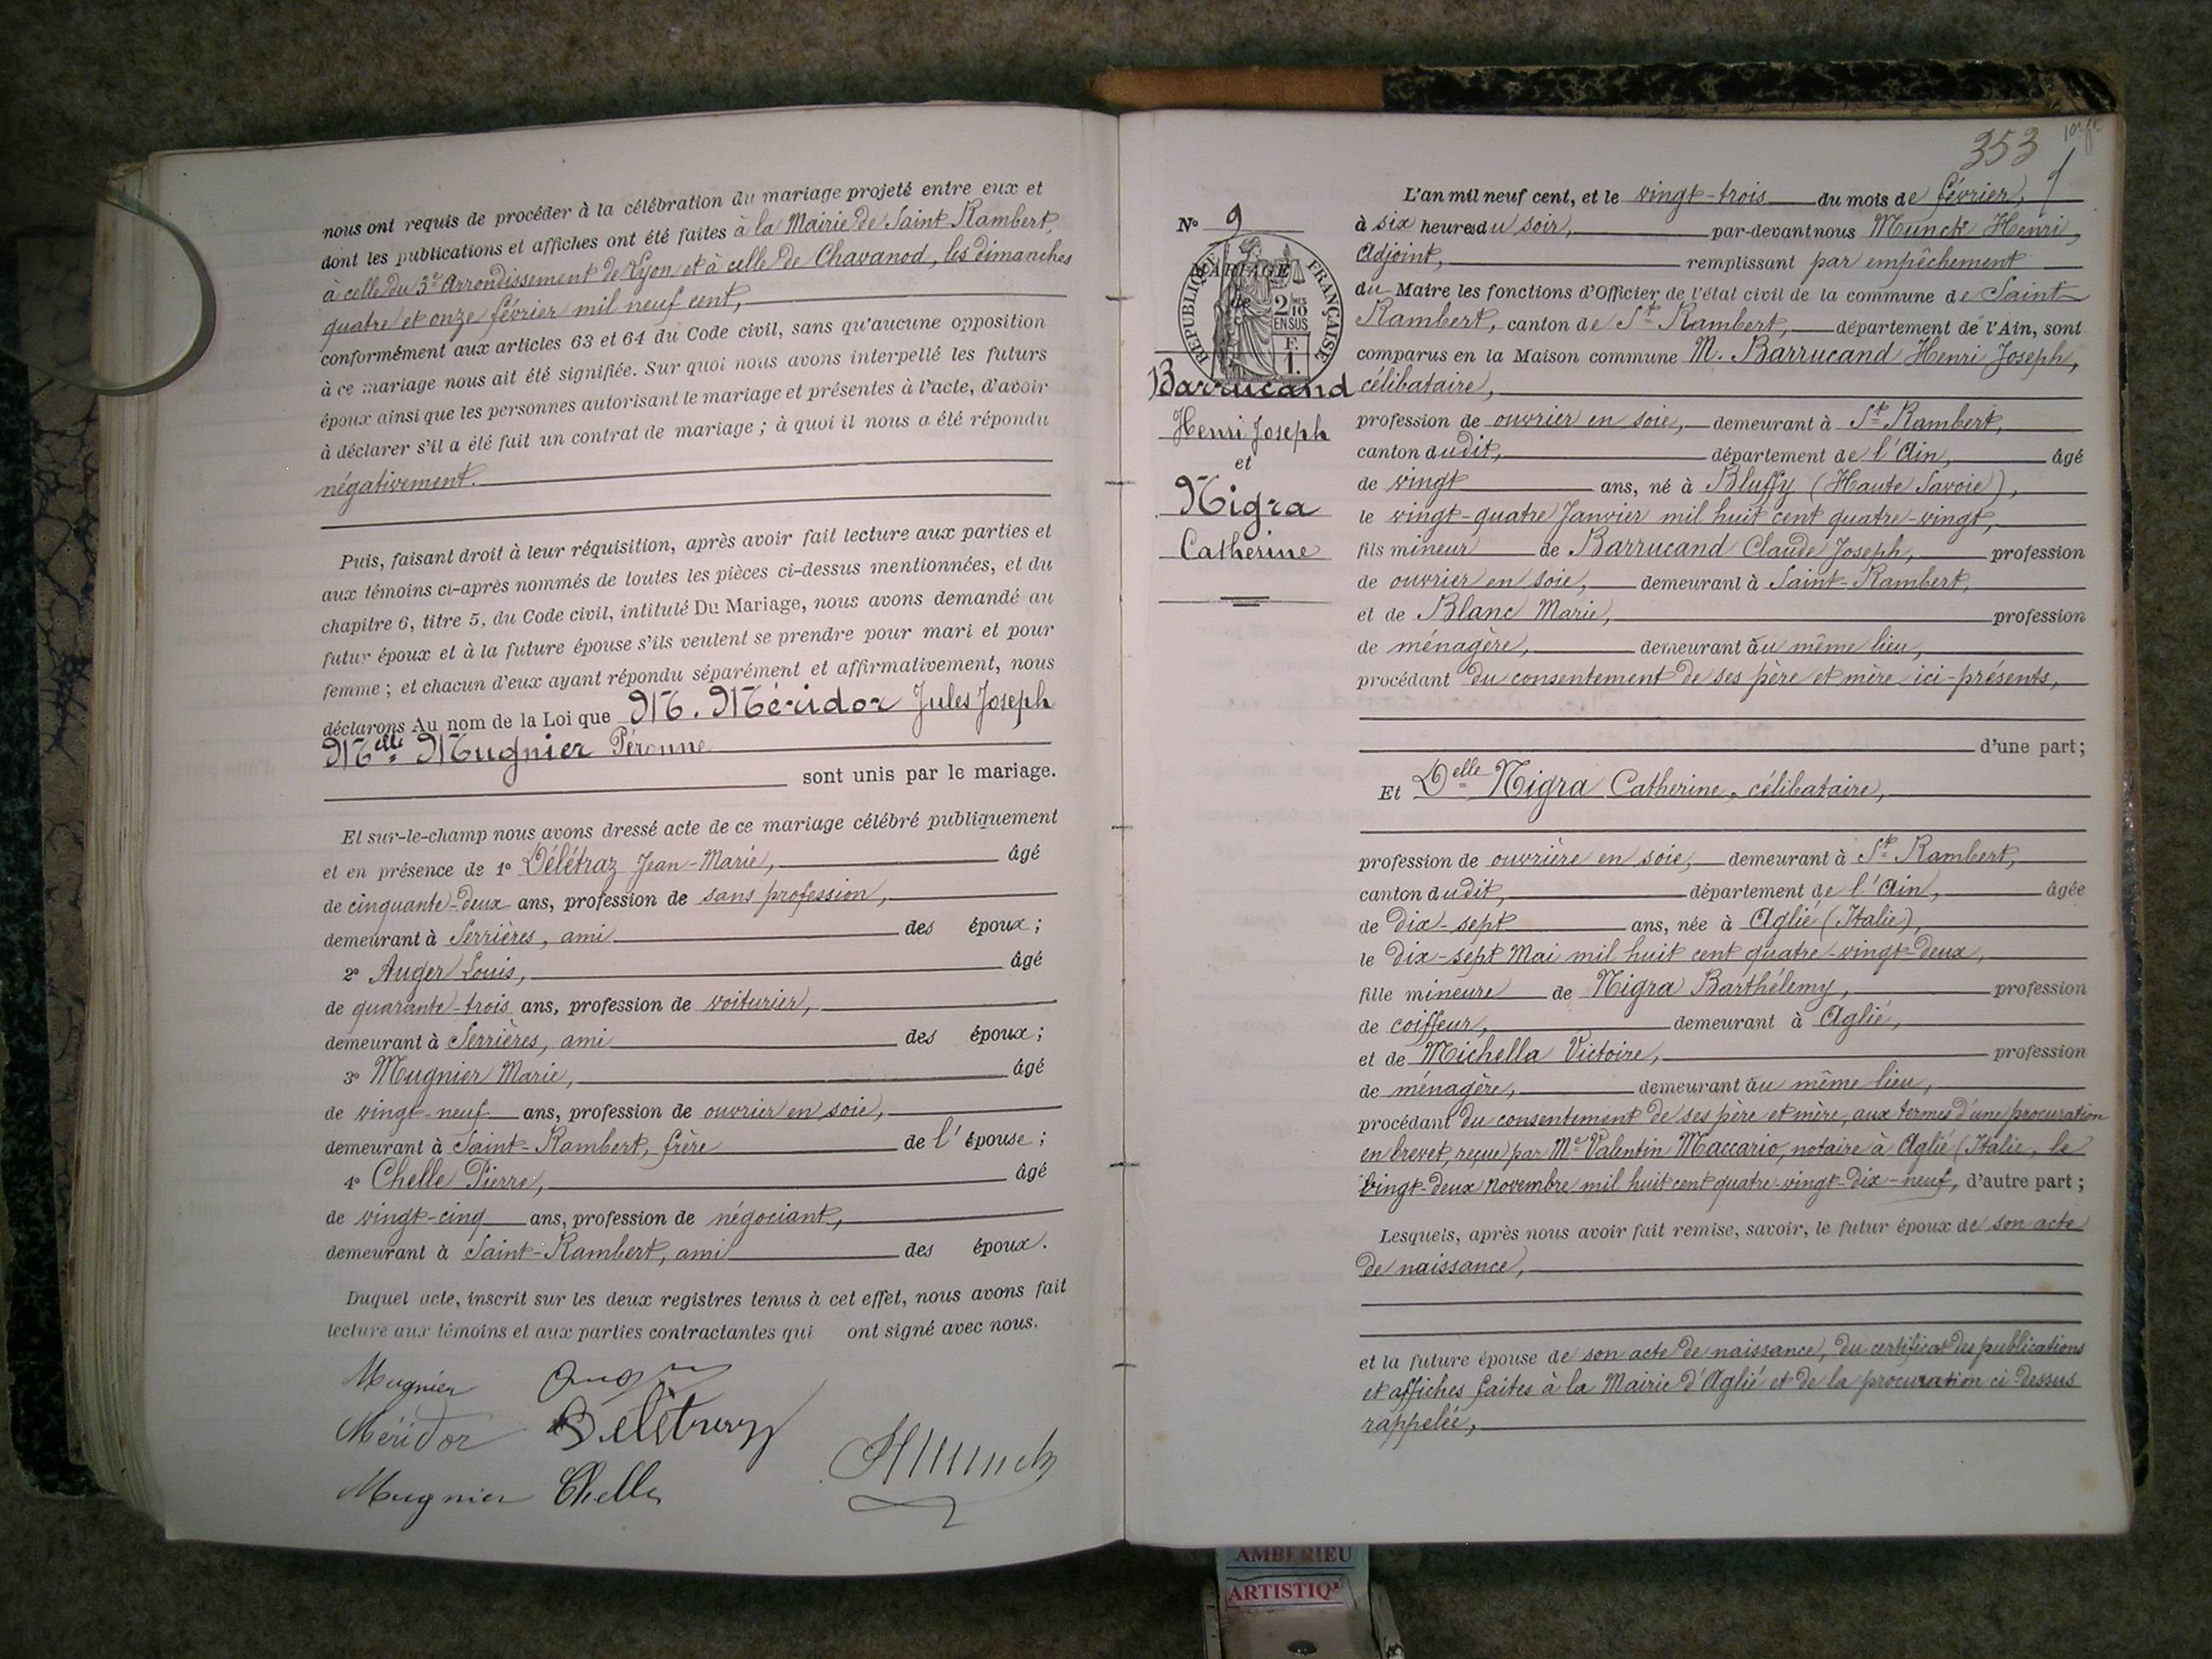 nous ont requis de procéder à la célébration du mariage projeté entre eux et
dont les publications et affiches ont été faites à la Mairie de Saint Rambert,
à celle du 3e arrondissement de Lyon et à celle de Chavanod, les dimanches
quatre et onze février mil neuf cent,
conformément aux articles 63 et 64 du Code civil, sans qu'aucune opposition
à ce mariage nous ait été signifiée. Sur quoi nous avons interpellé les futurs
époux ainsi que les personnes autorisant le mariage et présentes à l'acte, d'avoir
à déclarer s'il a été fait un contrat de mariage ; à quoi il nous a été répondu
négativement.
Puis, faisant droit à leur réquisition, après avoir fait lecture aux parties et
aux témoins ci-après nommés de toutes les pièces ci-dessus mentionnées, et du
chapitre 6, titre 5, du Code civil, intitulé Du Mariage, nous avons demandé au
futur époux et à la future épouse s'ils veulent se prendre pour mari et pour
femme ; et chacun d'eux ayant répondu séparément et affirmativement, nous
déclarons Au nom de la Loi que M. Méridor Jules Joseph
Melle Mugnier Péronne
sont unis par le mariage.
Et sur-le-champ nous avons dressé acte de ce mariage célébré publiquement
et en présence de 1o Délétraz Jean-Marie, âgé
de cinquante-deux ans, profession de sans profession,
demeurant à Serrières, ami des époux ;
2o Auger Louis, âgé
de quarante-trois ans, profession de voiturier,
demeurant à Serrières, ami des époux ;
3o Mugnier Marie, âgé
de vingt-neuf ans, profession de ouvrier en soie,
demeurant à Saint-Rambert, frère de l'épouse ;
4o Chelle Pierre, âgé
de vingt-cinq ans, profession de négociant,
demeurant à Saint-Rambert, ami des époux.
Duquel acte, inscrit sur les deux registres tenus à cet effet, nous avons fait
lecture aux témoins et aux parties contractantes qui ont signé avec nous.
Mugnier
Méridor Délétraz
Mugnier Chelle HMunck
353
No 9
RÉPUBLIQUE FRANÇAISE
MARIAGE
de
2/10mes
EN SUS
F.
1.
Barrucand
Henri Joseph
et
Nigra
Catherine
L'an mil neuf cent, et le vingt-trois du mois de février,
à six heures du soir, par-devant nous Munck Henri,
Adjoint, remplissant par empêchement
du Maire les fonctions d'Officier de l'état civil de la commune de Saint
Rambert, canton de St Rambert, département de l'Ain, sont
comparus en la Maison commune M. Barrucand Henri Joseph,
célibataire,
profession de ouvrier en soie, demeurant à St Rambert,
canton dudit, département de l'Ain, âgé
de vingt ans, né à Bluffy (Haute Savoie),
le vingt-quatre Janvier mil huit cent quatre-vingt,
fils mineur de Barrucand Claude Joseph, profession
de ouvrier en soie, demeurant à Saint-Rambert,
et de Blanc Marie, profession
de ménagère, demeurant au même lieu,
procédant du consentement de ses père et mère ici-présents,
d'une part ;
Et Delle Nigra Catherine, célibataire,
profession de ouvrière en soie, demeurant à St Rambert,
canton dudit, département de l'Ain, âgée
de dix-sept ans, née à Aglié (Italie),
le dix-sept Mai mil huit cent quatre-vingt-deux,
fille mineure de Nigra Barthélemy, profession
de coiffeur, demeurant à Aglié,
et de Michella Victoire, profession
de ménagère, demeurant au même lieu,
procédant du consentement de ses père et mère, aux termes d'une procuration
en brevet, reçue par Me Valentin Maccario, notaire à Aglié (Italie, le
vingt-deux novembre mil huit cent quatre-vingt-dix-neuf, d'autre part ;
Lesquels, après nous avoir fait remise, savoir, le futur époux de son acte
de naissance,
et la future épouse de son acte de naissance, du certificat des publications
et affiches faites à la Mairie d'Aglié et de la procuration ci-dessus
rappelée,
AMBERIEU
ARTISTIQ